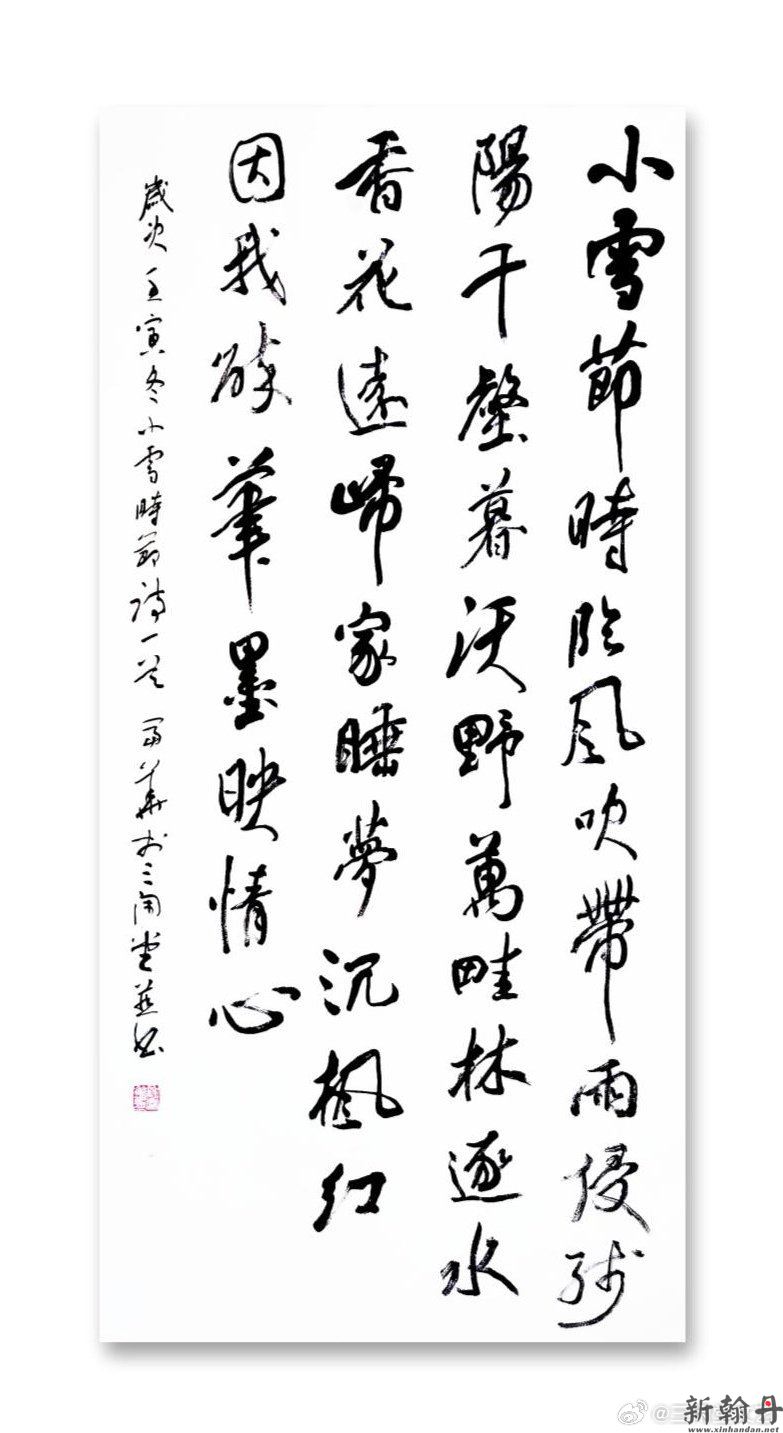 小雪節時臨風吹帶雨侵殘
陽千壑暮沃野萬畦林逐水
香花遠歸家睡夢沉楓紅
因我醉筆墨映情心
歲次壬寅冬小雪時節詩一首 華於三堂並書
新翰丹
www.xinhandan.net